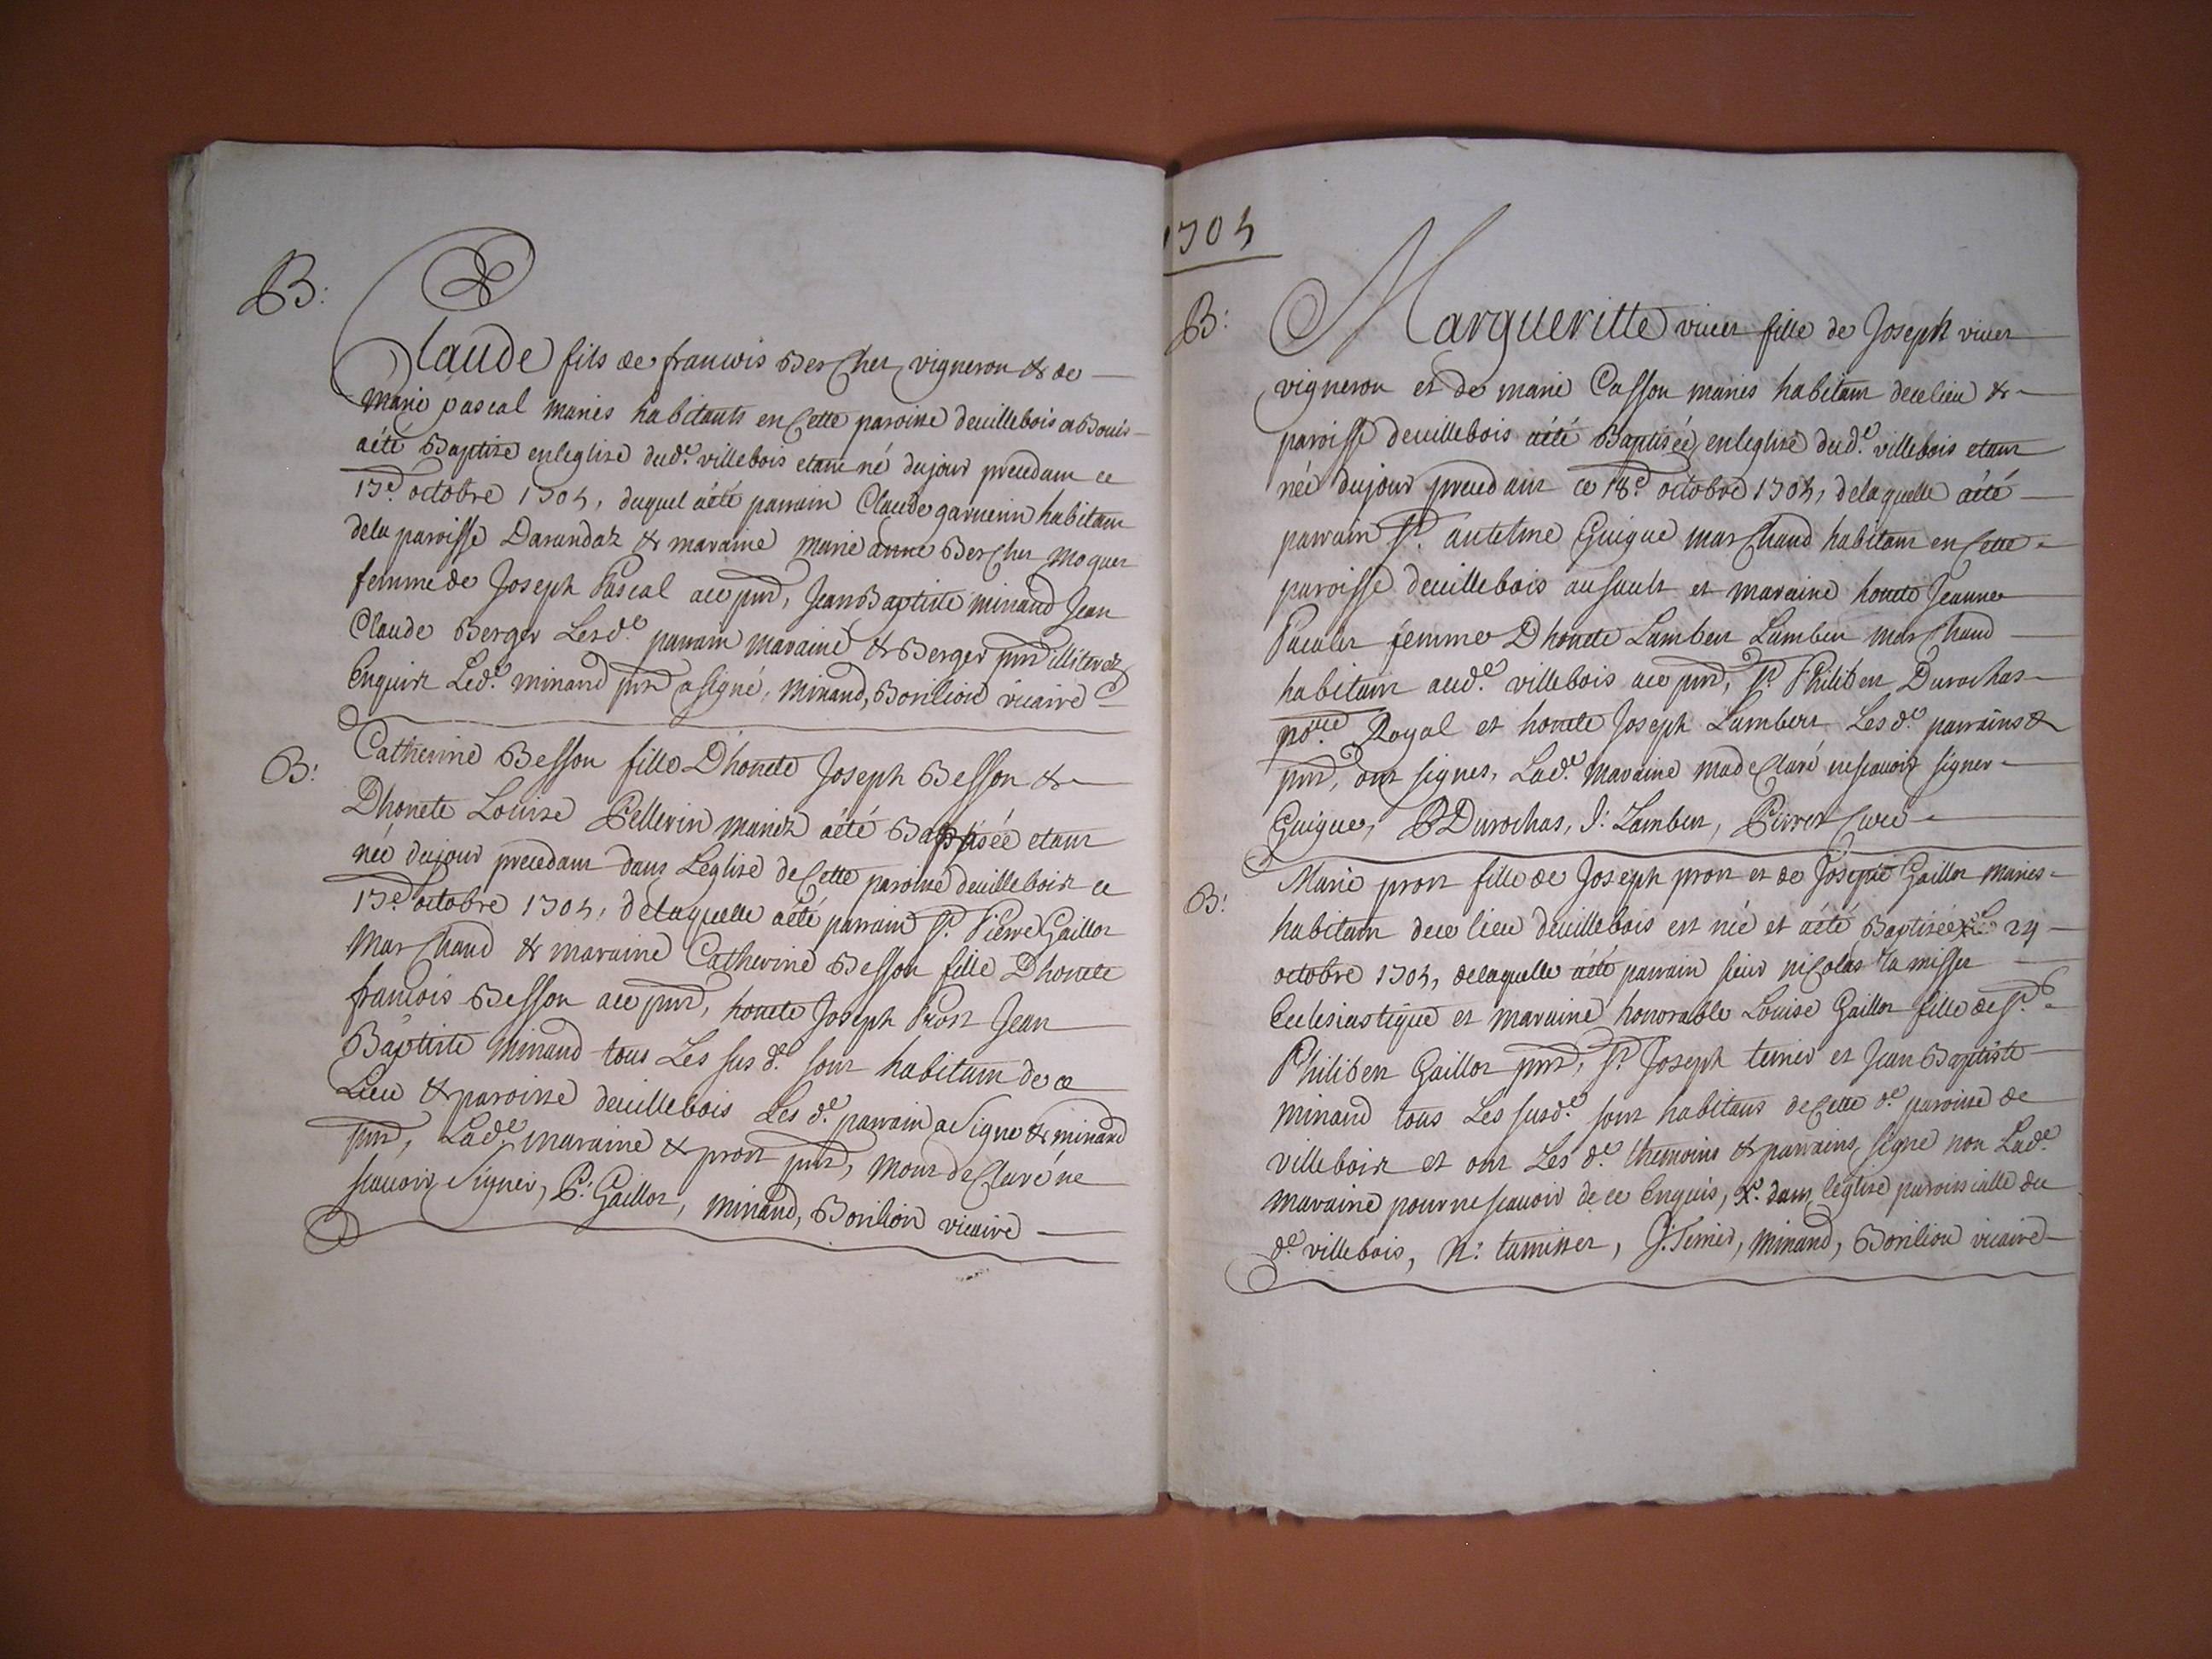 B:
Claude fils de francois Bercher vigneron & de
marie pascal mariés habitants en Cette paroisse devillebois a Bouis
aété Baptise enleglise dud.e villebois etant né dujour precedam ce
17e octobre 1704, duquel aété parrain Claude garnerin habitam
dela paroisse Darandaz & maraine marie anne Bercher moquer
femme de Joseph Pascal ace pnd, Jean Baptiste minand Jean
Claude Berger Lesd.e parrain maraine & Berger pnd illiterez
Enquis Led.e minand pnd a signé, minand, Borilion vicaire
B:
Catherine Besson fille Dhonete Joseph Besson &
Dhonete Louise Pellerin mariez aété Baptisée etant
née dujour precedam dans Leglise de Cette paroisse devillebois ce
17e octobre 1704, delaquelle aété parrain Sr. Pierre Gaillot
marchand & maraine Catherine Besson fille Dhonete
francois Besson ace pnd, honete Joseph Prost Jean
Baptiste Minand tous Les sus d.e sont habitam de ce
Lieu & paroisse devillebois Les d.e parrain a Signe & minand
pnd, Lad.e maraine & prost pnd, mont declaré ne
scauoir Signer, P: Gaillot, minand, Borilion vicaire
1704
B:
Margueritte viuer fille de Joseph viuer
vigneron et de marie Casson mariés habitam decelieu &
paroisse devillebois aété Baptisée enleglise dud.e villebois etant
née dujour precedam ce 18e octobre 1704, delaquelle aété
parrain Sr. antelme Guigue marchand habitam en Cette
paroisse devillebois au sault et maraine honete Jeanne
femme Dhonete Lambert Lambert marchand
habitam aud.e villebois ace pnd, Sr. Philibert Durochas
no.re Royal et honete Joseph Lambert Les d.e parrains &
pnd, ont signes, Lad.e maraine ma declaré nescauoir signer
Guigue, P Durochas, J: Lambert, Perret Curé
B:
Marie prost fille de Joseph prost et de Josepte Gaillot mariés
habitam de ce lieu devillebois est née et aété Baptisée X Le 24
octobre 1704, delaquelle aété parrain sieur nicolas tamisser
Eclesiastique et maraine honorable Louise Gaillot fille de Sr.
Philibert Gaillot pnd, Sr. Joseph tenier et Jean Baptiste
minand tous Les susd.e sont habitans de Cette d.e paroisse de
villebois et ont Les d.e themoins & parrains, signe non Lad.e
maraine pour ne scauoir de ce Enquis, X. dans leglise paroissialle du
d.e villebois, N: tamisser, J: Tenier, minand, Borilion vicaire